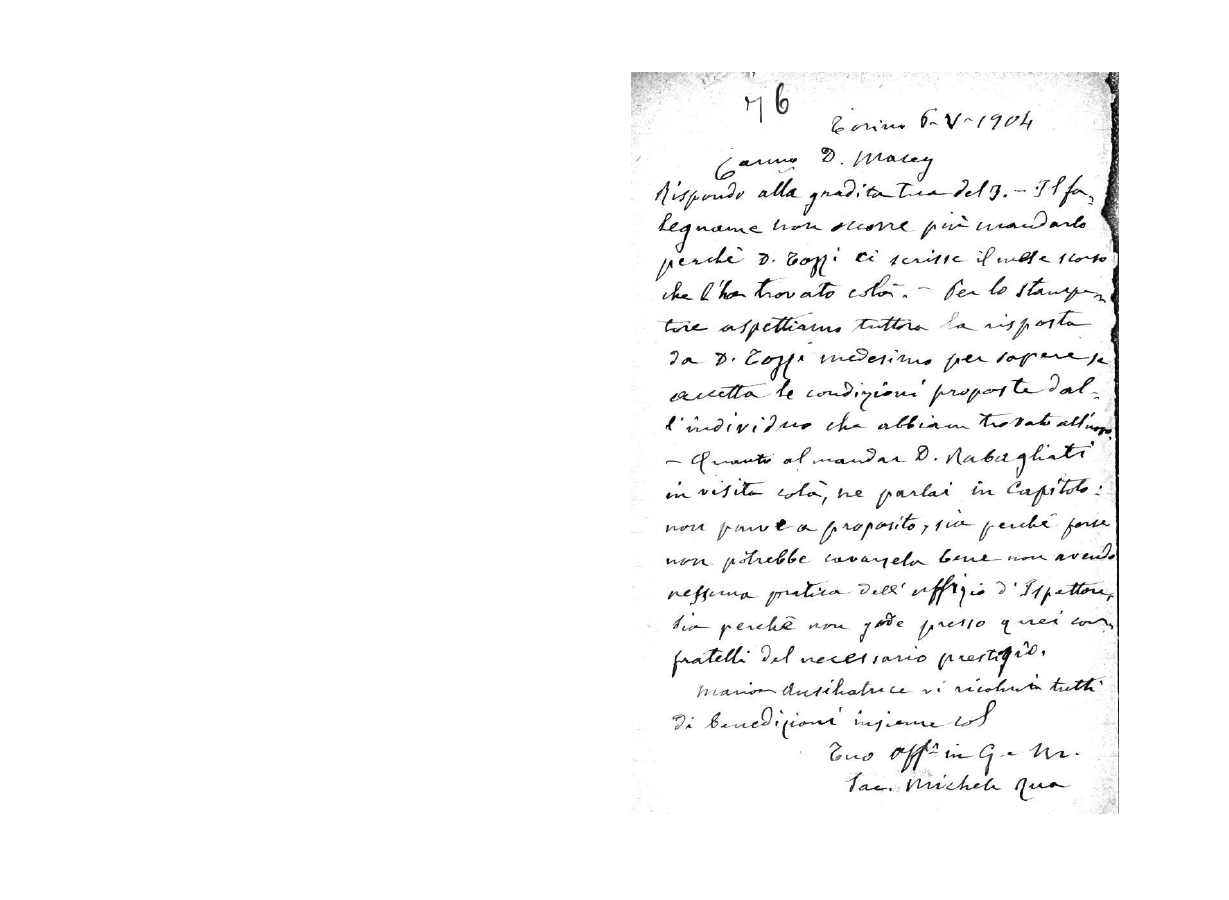 76
Torino 6-V-1904
Carmo D. Macey
Rispondo alla gradita tua del 3. - Il fa-
legname non occorre più mandarlo
perchè D. Tozzi ci scrisse il mese scorso
che l'ha trovato colà. - Per lo stampa-
tore aspettiamo tuttora la risposta
da D. Tozzi medesimo per sapere se
accetta le condizioni proposte dal-
l'individuo che abbiam trovato all'uopo.
- Quanto al mandar D. Rabagliati
in visita colà, ne parlai in Capitolo:
non parve a proposito, sia perchè forse
non potrebbe cavarsela bene non avendo
nessuna pratica dell'uffizio d'Ispettore,
sia perchè non gode presso quei con-
fratelli del necessario prestigio.
Maria Ausiliatrice vi ricolmi tutti
di benedizioni insieme col
Tuo aff.º in G. e M.
Sac. Michele Rua